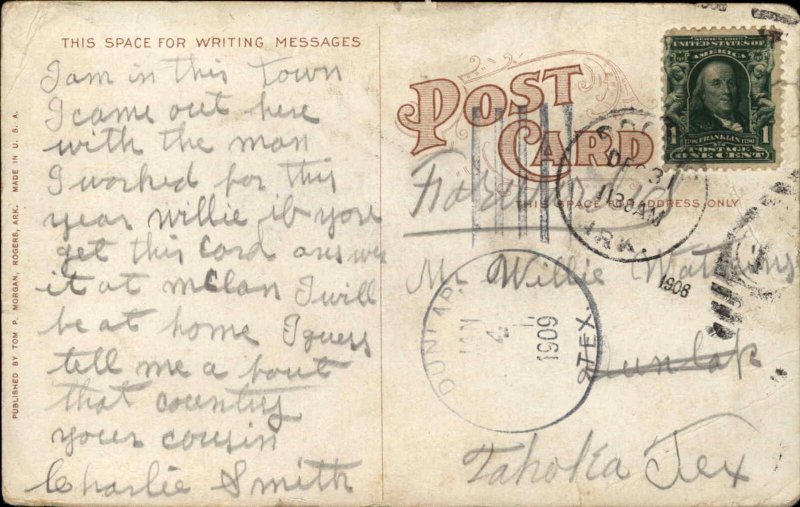 THIS SPACE FOR WRITING MESSAGES
I am in this Town
I came out here
with the man
I worked for this
year willie if you
get this Card answer
it at mclan I will
be at home I guess
tell me a bout
that countriy
your cousin
Charlie Smith
PUBLISHED BY TOM P. MORGAN, ROGERS, ARK. MADE IN U. S. A.
POST CARD
THIS SPACE FOR ADDRESS ONLY
SERIES 1902
UNITED STATES OF AMERICA
1 1
1706 FRANKLIN 1790
POSTAGE
ONE CENT
DEC 31
11 30 AM
ARK.
1908
DUNLAP
TEX.
JAN
4
1909
Mr Willie Watkins
Dunlap
Tahoka Tex